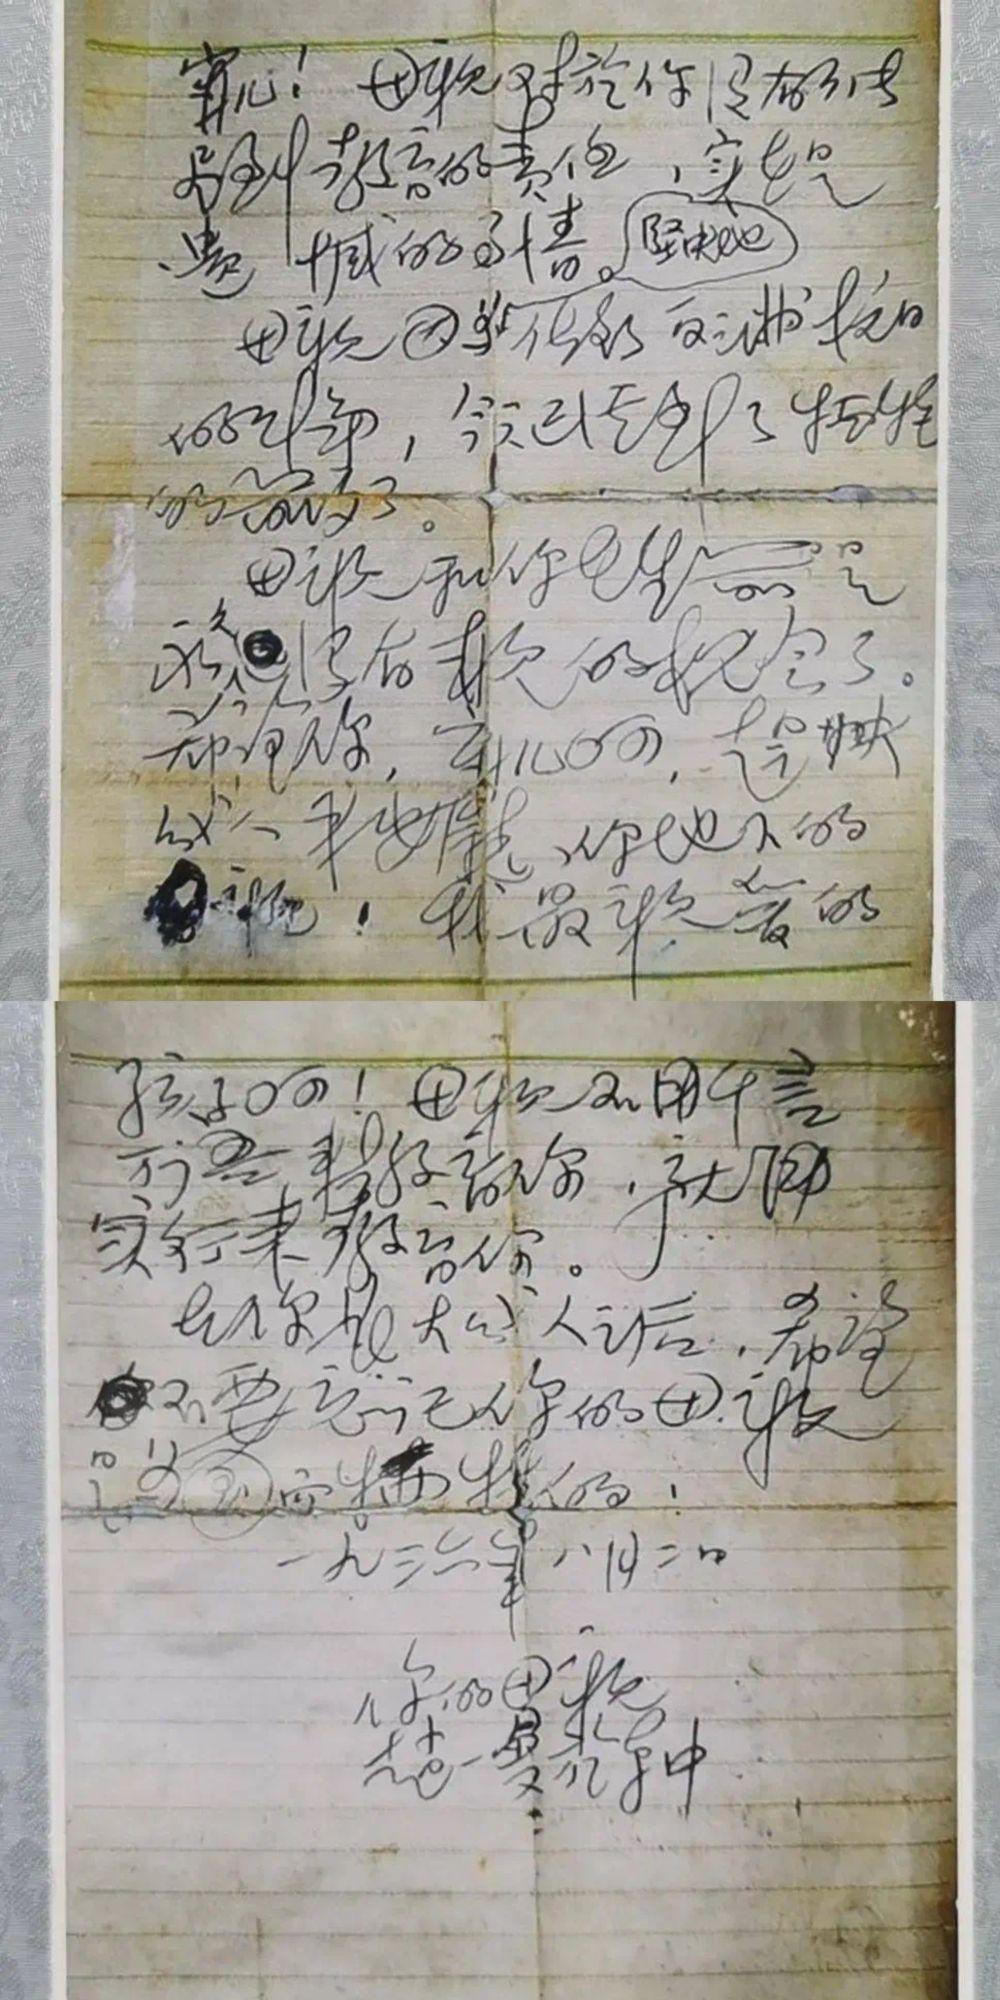 宁儿！母亲对於你没有能
尽到教育的责任，实在是
遗憾的事情。
坚决地
母亲因为作了反满抗日
的斗争，今天已经到了牺牲
的前夕了。
母亲和你在生前是
永久没有见的机会了。
希望你，宁儿啊，赶快
成人，来安慰你地下的
母亲！我最亲爱的
孩子啊！母亲不用千言
万语来教育你，就用
实行来教育你。
在你长大成人之后，希望
不要忘记你的母亲
是为国而牺牲的！
一九三六年八月二日
你的母亲
赵一曼於车中